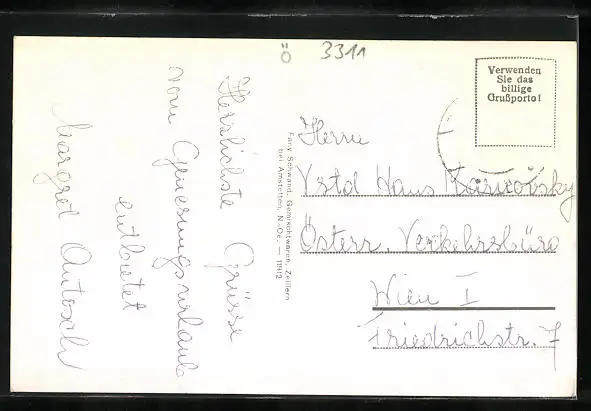 Ö 3311
Verwenden
Sie das
billige
Grußporto!
Herzlichste Grüsse
vom Genesungsurlaub
entbietet
Margret Antosch
Fany Schwand, Gemischtwaren, Zeillern
bei Amstetten, N.-Oe. — 11912
Herrn
Vstd Hans
Österr. Verkehrsbüro
Wien I
Friedrichstr. 7